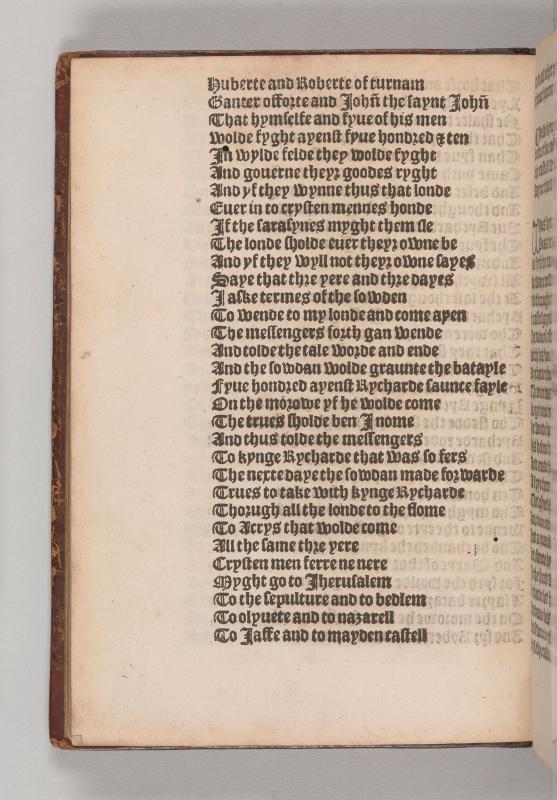 Huberte and Roberte of turnam
Ganter offorte and Johñ the saynt Johñ
That hymselfe and fyue of his men
Wolde fyght ayenst fyue hondred & ten
In wylde felde they wolde fyght
And gouerne theyr goodes ryght
And yf they wynne thus that londe
Euer in to crysten mennes honde
If the sarasynes myght them sle
The londe sholde euer theyr owne be
And yf they wyll not theyr owne sayes
Saye that thre yere and thre dayes
I aske termes of the sowden
To wende to my londe and come ayen
The messengers forth gan wende
And tolde the tale worde and ende
And the sowdan wolde graunte the batayle
Fyue hondred ayenst Rycharde saunce fayle
On the morowe yf he wolde come
The trues sholde ben Jnome
And thus tolde the messengers
To kynge Rycharde that was so fers
The nexte daye the sowdan made forwarde
Trues to take with kynge Rycharde
Thorugh all the londe to the flome
To Acrys that wolde come
All the same thre yere
Crysten men ferre ne nere
Myght go to Jherusalem
To the sepulture and to bedlem
To olyuete and to nazarell
To Jaffe and to mayden castell